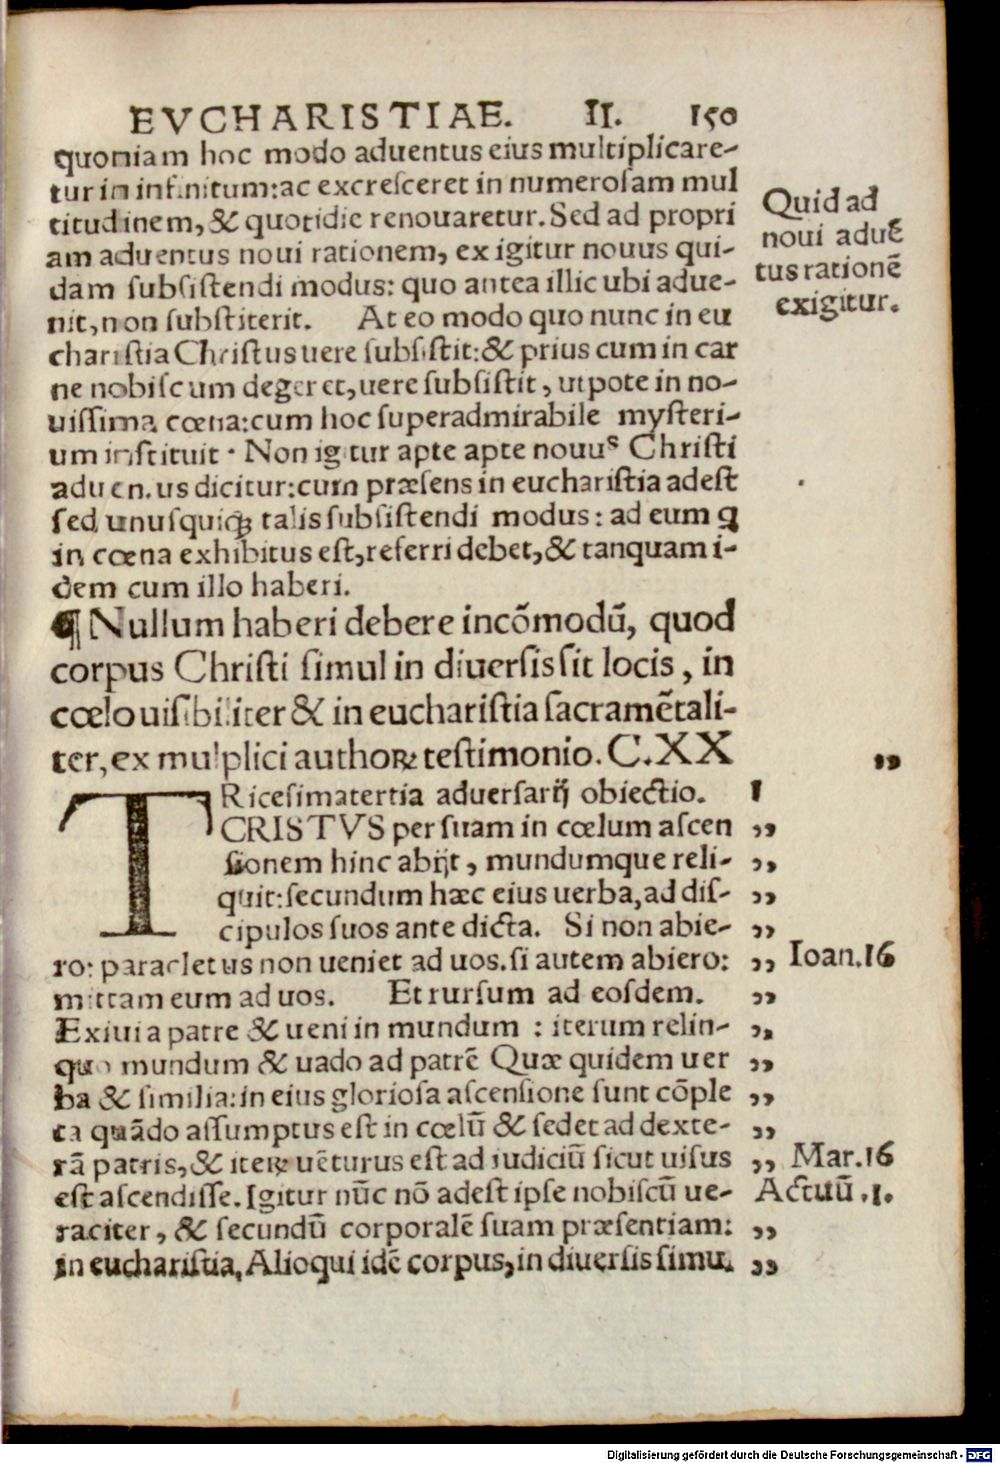 EVCHARISTIAE. II. 150
quoniam hoc modo aduentus eius multiplicare-
tur in infinitum:ac excreſceret in numeroſam mul
titudinem, & quotidie renouaretur. Sed ad propri
am aduentus noui rationem, exigitur nouus qui-
dam ſubſiſtendi modus: quo antea illic ubi adue-
nit, non ſubſtiterit. At eo modo quo nunc in eu
chariſtia Chriſtus uere ſubſiſtit:& prius cum in car
ne nobiſcum degeret, uere ſubſiſtit, utpote in no-
uiſſima cœna:cum hoc ſuperadmirabile myſteri-
um inſtituit · Non igitur apte apte nouuˢ Chriſti
aduentus dicitur:cum præſens in euchariſtia adeſt
ſed unuſquiqꝫ talis ſubſiſtendi modus: ad eum ꝗ
in cœna exhibitus eſt, referri debet, & tanquam i-
dem cum illo haberi.
Quid ad
noui aduẽ
tus rationẽ
exigitur.
¶ Nullum haberi debere incõmodũ, quod
corpus Chriſti ſimul in diuerſis ſit locis, in
cœlo uiſibiliter & in euchariſtia ſacramẽtali-
ter, ex mulplici authoꝝ teſtimonio. C. XX „
TRiceſimatertia aduerſarĳ obiectio. 1
CRISTVS per ſuam in cœlum aſcen „
ſionem hinc abĳt, mundumque reli- „
quit:ſecundum hæc eius uerba, ad diſ- „
cipulos ſuos ante dicta. Si non abie- „
ro: paracletus non ueniet ad uos. ſi autem abiero: „ Ioan. 16
mittam eum ad uos. Et rurſum ad eoſdem. „
Exiui a patre & ueni in mundum : iterum relin- „
quo mundum & uado ad patrẽ Quæ quidem uer „
ba & ſimilia: in eius glorioſa aſcenſione ſunt cõple „
ta quãdo aſſumptus eſt in cœlũ & ſedet ad dexte- „
rã patris, & iteꝝ uẽturus eſt ad iudiciũ ſicut uiſus „ Mar. 16
eſt aſcendiſſe. Igitur nũc nõ adeſt ipſe nobiſcũ ue- Actuũ .1.
raciter, & ſecundũ corporalẽ ſuam præſentiam: „
in euchariſtia, Alioqui idẽ corpus, in diuerſis ſimu. „
Digitalisierung gefördert durch die Deutsche Forschungsgemeinschaft - DFG